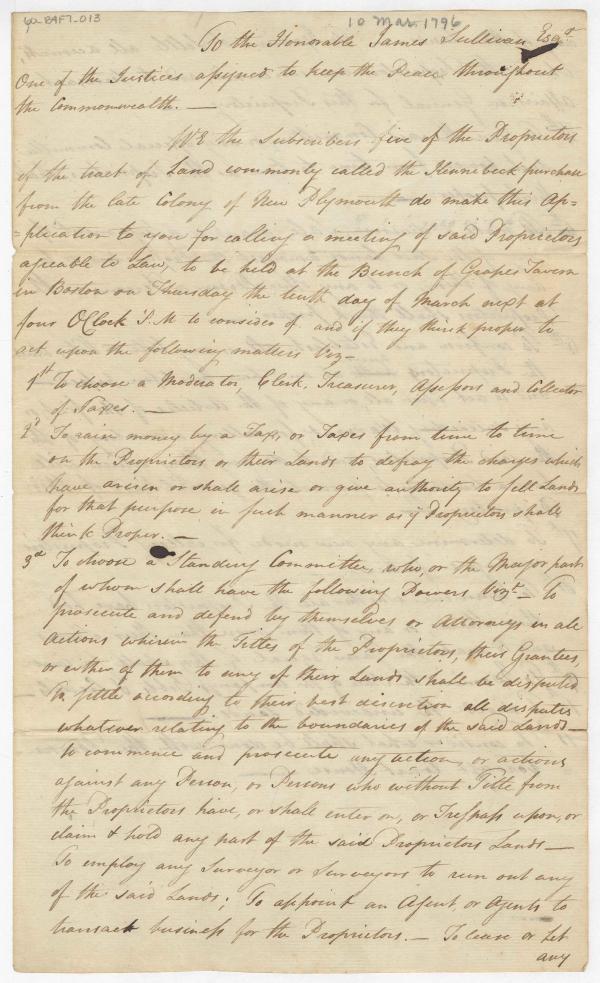 62-B4F7-013
10 Mar. 1796
To the Honorable James Sullivan Esqr.
One of the Justices assigned to keep the Peace throughout
the Commonwealth. —
WE the Subscribers five of the Proprietors
of the tract of Land commonly called the Kennebeck purchase
from the late Colony of New Plymouth do make this Ap=
=plication to you for calling a meeting of said Proprietors
agreable to Law, to be held at the Bunch of Grapes Tavern
in Boston on Thursday the tenth day of March next at
four OClock P.M to consider of and if they think proper to
act upon the following matters Viz—
1st To choose a Moderator, Clerk, Treasurer, Assessors and Collector
of Taxes. —
2d To raise money by a Tax, or Taxes from time to time
on the Proprietors or their Lands to defray the charges which
have arisen or shall arise or give authority to sell Lands
for that purpose in such manner as ye Proprietors shall
think Proper. —
3d To choose a Standing Committee, who, or the Major part
of whom shall have the following Powers Vizt — To
prosecute and defend by themselves or Attorneys in all
Actions wherein the Titles of the Proprietors, their Grantees,
or either of them to any of their Lands shall be disputed
To settle according to their best discretion all disputes
whatever relating to the boundaries of the said Lands —
to commence and prosecute any action, or actions
against any Person, or Persons who without Title from
the Proprietors have, or shall enter on, or Tresspass upon, or
claim & hold any part of the said Proprietors Lands —
To employ any Surveyor or Surveyors to run out any
of the said Lands; To appoint an Agent, or Agents to
transact business for the Proprietors. — To lease or Let
any